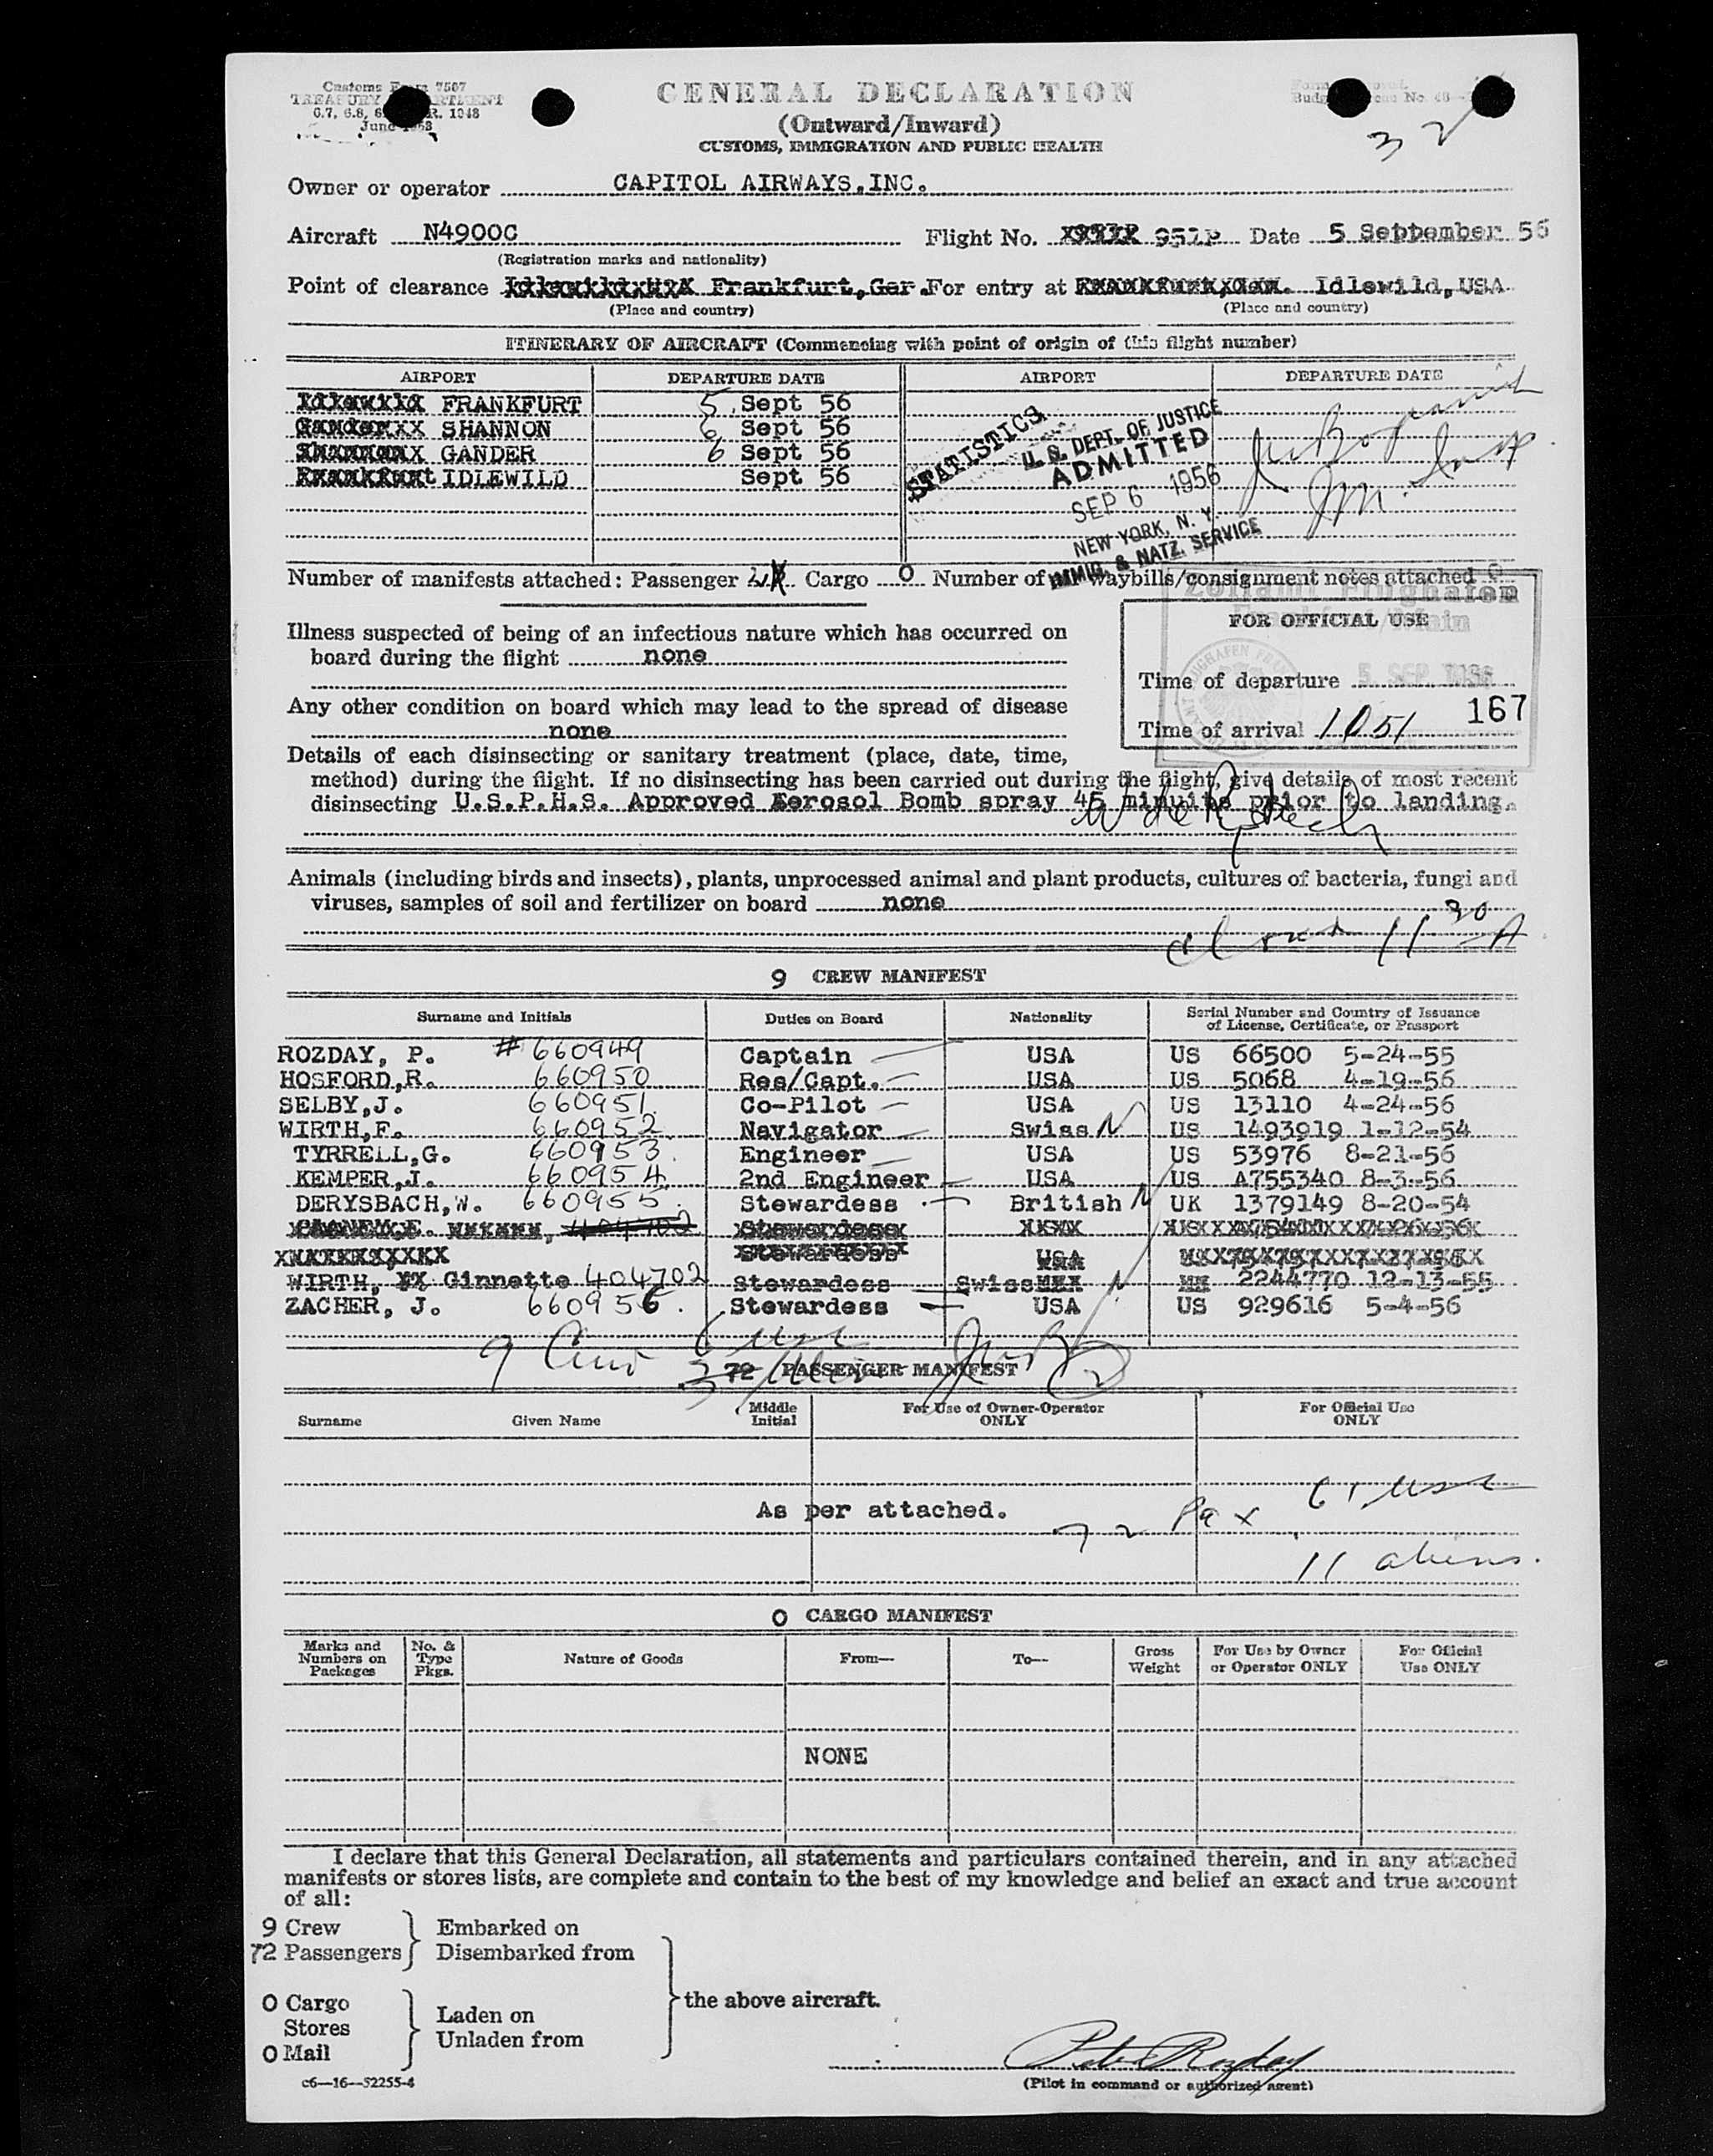 Customs Form 7507
TREASURY DEPARTMENT
June 1953
GENERAL DECLARATION
(Outward/Inward)
CUSTOMS, IMMIGRATION AND PUBLIC HEALTH
32
Owner or operator CAPITOL AIRWAYS, INC.
Aircraft N4900C Flight No. 951P Date 5 September 56
(Registration marks and nationality)
Point of clearance Frankfurt, Ger. For entry at Idlewild, USA
(Place and country) (Place and country)
ITINERARY OF AIRCRAFT (Commencing with point of origin of this flight number)
AIRPORT DEPARTURE DATE AIRPORT DEPARTURE DATE
FRANKFURT 5 Sept 56
SHANNON 6 Sept 56
GANDER 6 Sept 56
IDLEWILD Sept 56
STATISTICS
U. S. DEPT. OF JUSTICE
ADMITTED
SEP 6 1956
NEW YORK, N. Y.
IMMIG. & NATZ. SERVICE
Number of manifests attached: Passenger Cargo 0 Number of waybills/consignment notes attached 0
Zollamt Flughafen
Frankfurt/Main
FOR OFFICIAL USE
Illness suspected of being of an infectious nature which has occurred on
board during the flight none
Time of departure 5. SEP. 1956
Any other condition on board which may lead to the spread of disease
none
167
Time of arrival 1051
Details of each disinsecting or sanitary treatment (place, date, time,
method) during the flight. If no disinsecting has been carried out during the flight, give details of most recent
disinsecting U.S.P.H.S. Approved Aerosol Bomb spray 45 minuits prior to landing.
Animals (including birds and insects), plants, unprocessed animal and plant products, cultures of bacteria, fungi and
viruses, samples of soil and fertilizer on board none
11 30 A
9 CREW MANIFEST
Surname and Initials Duties on Board Nationality Serial Number and Country of Issuance of License, Certificate, or Passport
ROZDAY, P. #660949 Captain USA US 66500 5-24-55
HOSFORD, R. 660950 Res/Capt. USA US 5068 4-19-56
SELBY, J. 660951 Co-Pilot USA US 13110 4-24-56
WIRTH, F. 660952 Navigator Swiss N US 1493919 1-12-54
TYRRELL, G. 660953 Engineer USA US 53976 8-21-56
KEMPER, J. 660954 2nd Engineer USA US A755340 8-3-56
DERYSBACH, W. 660955 Stewardess British N UK 1379149 8-20-54
404702 Stewardess
Stewardess USA
WIRTH, Ginnette 404702 Stewardess Swiss N 2244770 12-13-55
ZACHER, J. 660956 Stewardess USA US 929616 5-4-56
9 Crew 6 USC
3
72 PASSENGER MANIFEST
Surname Given Name Middle Initial For Use of Owner-Operator ONLY For Official Use ONLY
As per attached.
72 Pax 61 USC
11 aliens.
0 CARGO MANIFEST
Marks and Numbers on Packages No. & Type Pkgs. Nature of Goods From— To— Gross Weight For Use by Owner or Operator ONLY For Official Use ONLY
NONE
I declare that this General Declaration, all statements and particulars contained therein, and in any attached
manifests or stores lists, are complete and contain to the best of my knowledge and belief an exact and true account
of all:
9 Crew Embarked on
72 Passengers Disembarked from
the above aircraft.
0 Cargo
Stores
0 Mail
Laden on
Unladen from
Peter Rozday
(Pilot in command or authorized agent)
c6—16—52255-4